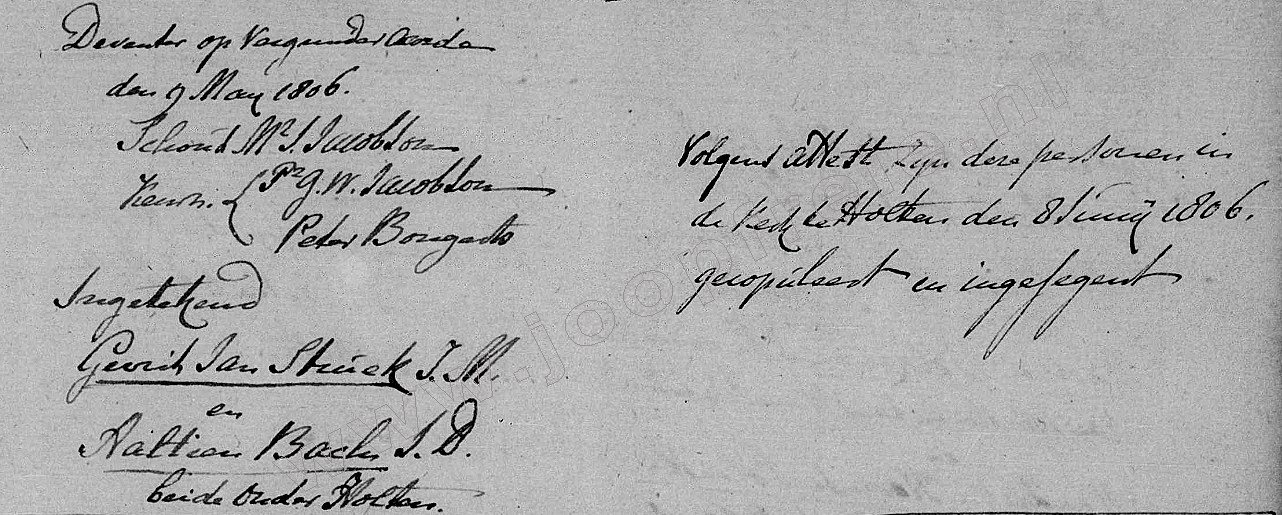 Deventer op Vergunder
den 9 May 1806.
Schout Mr. S. Jacobson
Keurn. { Pr. G. W. Jacobson
Peter Bongards
Ingetekend
Gerrit Jan Struck J. M.
en
Aaltien Bach J. D.
beide onder Holten.
Volgens attest zyn deze personen in
de Kerk te Holten den 8 Junij 1806.
gecopuleert en ingesegent
www.joopman.nl